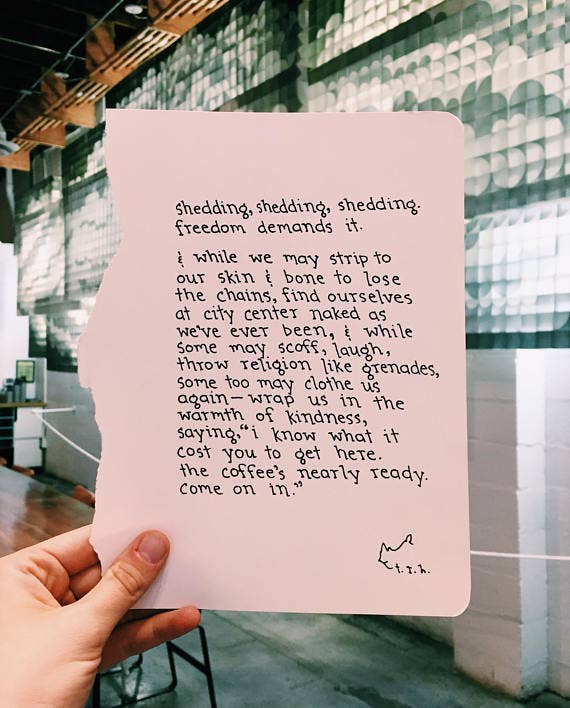 shedding, shedding, shedding.
freedom demands it.
& while we may strip to
our skin & bone to lose
the chains, find ourselves
at city center naked as
we've ever been, & while
some may scoff, laugh,
throw religion like grenades,
some too may clothe us
again—wrap us in the
warmth of kindness,
saying,"i know what it
cost you to get here.
the coffee's nearly ready.
come on in."
t.r.h.